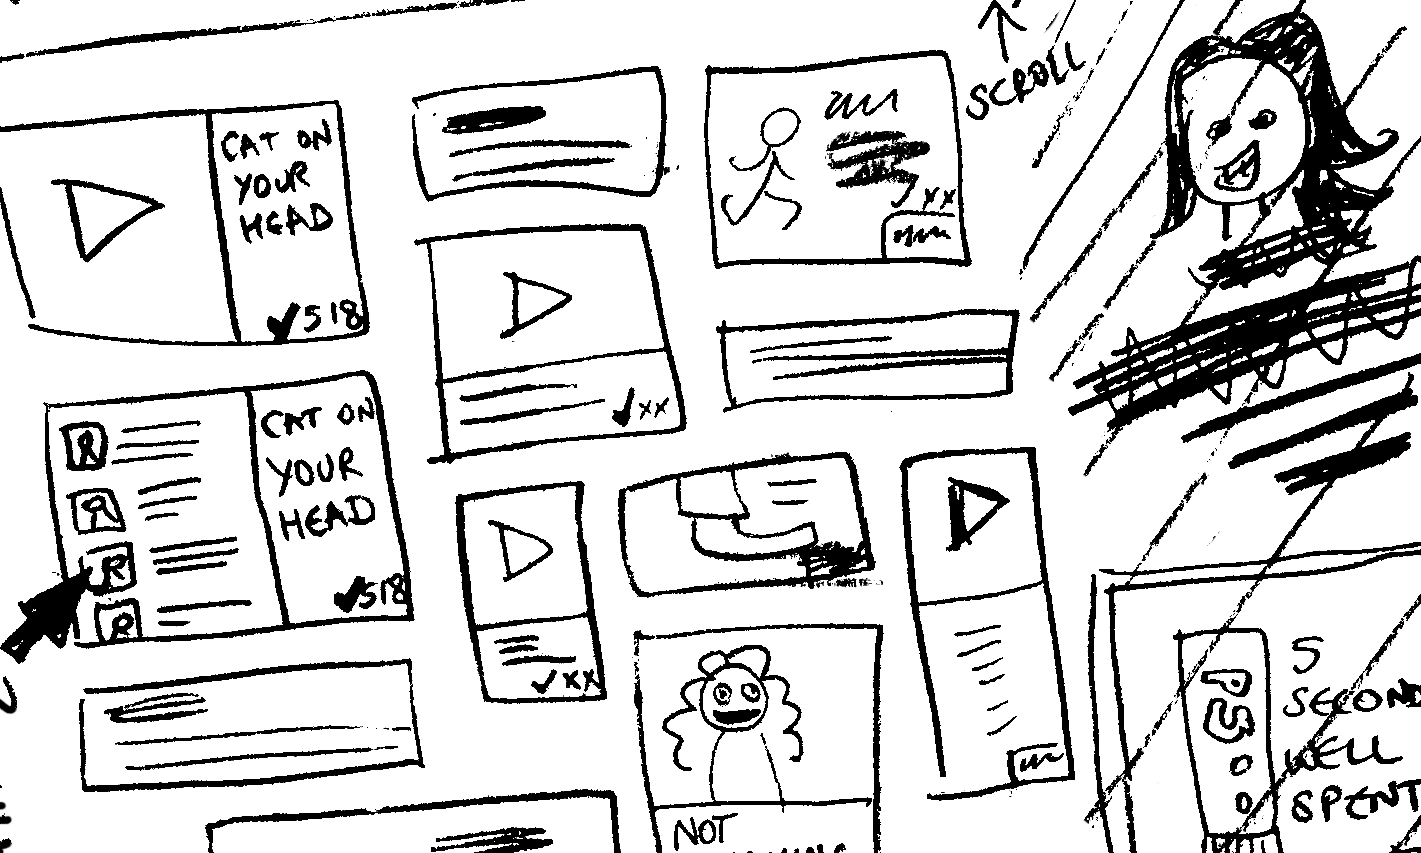 SCROLL
CAT ON
YOUR
HEAD
✓518
✓xx
✓xx
CAT ON
YOUR
HEAD
✓518
✓xx
NOT
PS
5
SECOND
WELL
SPENT